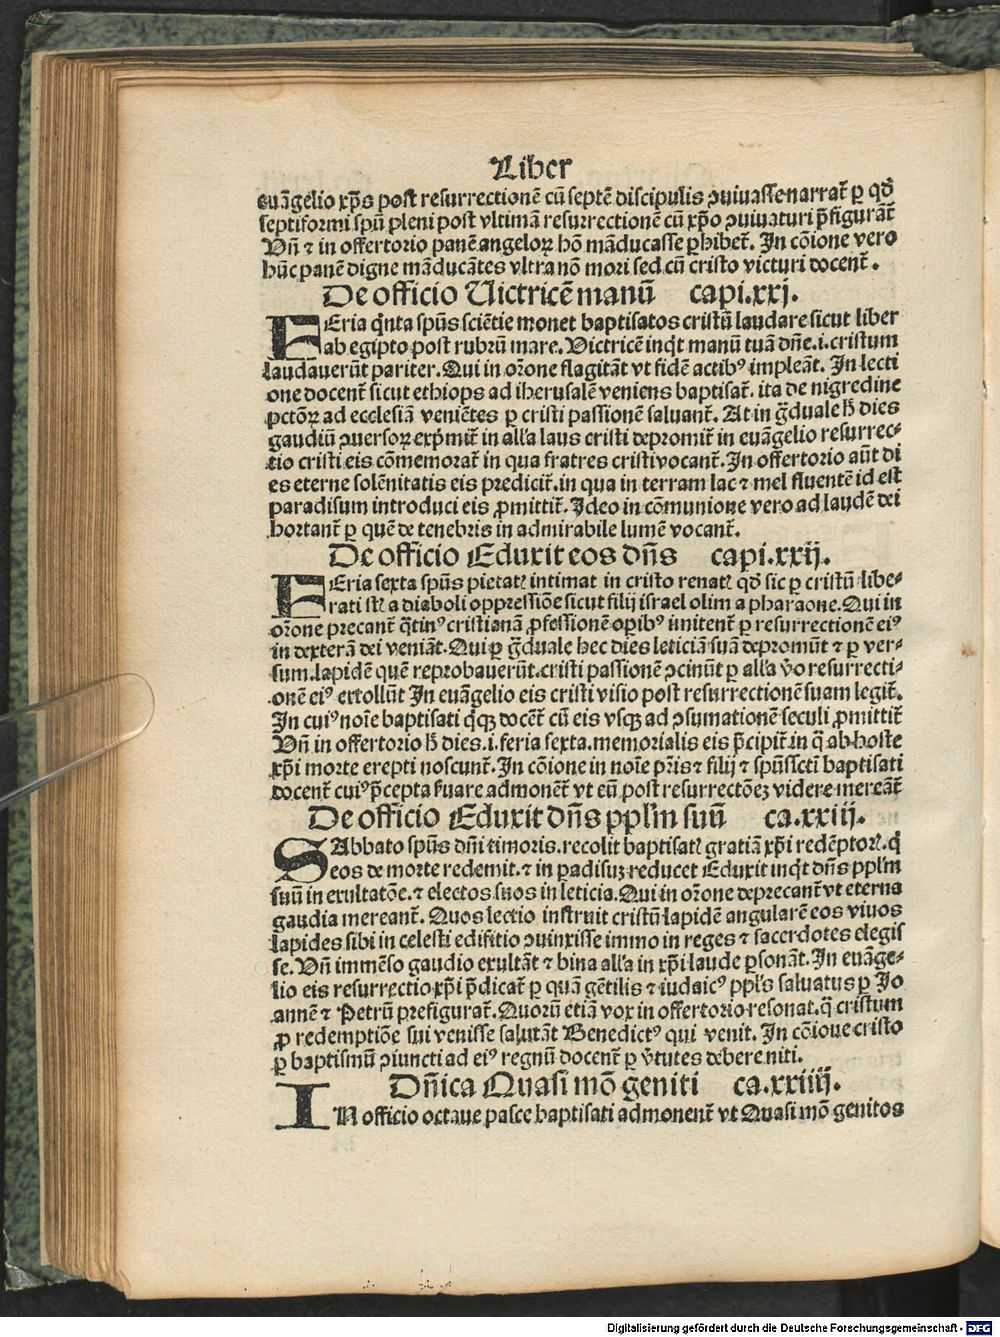 Liber
euāgelio xp̄s post resurrectionē cū septē discipulis ↄuiuasse narrat̄ ꝑ qd̄
septiformi spū pleni post vltimā resurrectionē cū xp̄o ↄuiuaturi p̄figurāt̄
Vn̄ ⁊ in offertorio panē angeloꝝ hō māducasse ꝑhibet̄. In cōione vero
hūc panē digne māducātes vltra nō mori sed cū cristo victuri docent̄.
De officio Uictricē manū capi.xxj.
FEria q̄nta spūs sciētie monet baptisatos cristū laudare sicut liber
ab egipto post rubrū mare. Victricē inq̄t manū tuā dn̄e.i.cristum
laudauerūt pariter. Qui in or̄one flagitāt vt fidē actibꝰ impleāt. In lecti
one docent̄ sicut ethiops ad iherusalē veniens baptisat̄. ita de nigredine
pctōꝝ ad ecclesiā veniētes ꝑ cristi passionē saluant̄. At in g̃duale h̄ dies
gaudiū ↄuersoꝝ exp̄mit̄ in all'a laus cristi depromit̄ in euāgelio resurrec⸗
tio cristi eis cōmemorat̄ in qua fratres cristi vocant̄. In offertorio aūt di
es eterne solēnitatis eis predicit̄. in qua in terram lac ⁊ mel fluentē id est
paradisum introduci eis ꝓmittit̄. Ideo in cōmunione vero ad laudē dei
hortant̄ ꝑ quē de tenebris in admirabile lumē vocant̄.
De officio Eduxit eos dn̄s capi.xxij.
FEria sexta spūs pietatꝭ intimat in cristo renatꝭ qd̄ sic ꝑ cristū libe⸗
rati st̄ a diaboli oppressiōe sicut filij israel olim a pharaone. Qui in
or̄one precant̄ q̄tinꝰ cristianā ꝓfessionē oꝑibꝰ imitent̄ ꝑ resurrectionē eiꝰ
in dexterā dei veniāt. Qui ꝑ g̃duale hec dies leticiā suā depromūt ⁊ ꝑ ver⸗
sum.lapidē quē reprobauerūt.cristi passionē ↄcinūt ꝑ all'a v̄o resurrecti⸗
onē eiꝰ extollūt In euāgelio eis cristi visio post resurrectionē suam legit̄.
In cuiꝰ noīe baptisati q̄qꝫ docēt̄ cū eis vsqꝫ ad ↄsumationē seculi ꝓmittit̄
Vn̄ in offertorio h̄ dies.i.feria sexta.memorialis eis p̄cipit̄.in q̄ ab hoste
xp̄i morte erepti noscunt̄. In cōione in noīe pr̄is ⁊ filij ⁊ spūssctī baptisati
docent̄ cuiꝰ p̄cepta ẜuare admonent̄ vt eū post resurrectōeꝫ videre mereāt̄
De officio Eduxit dn̄s ppl'm suū ca.xxiij.
SAbbato spūs dn̄i timoris.recolit baptisatꝭ gratiā xp̄i redēptorꝭ.q̄
eos de morte redemit.⁊ in padisuꝫ reducet Eduxit inq̄t dn̄s ppl'm
suū in exultatōe.⁊ electos suos in leticia. Qui in or̄one deprecant̄ vt eterna
gaudia mereant̄. Quos lectio instruit cristū lapidē angularē eos viuos
lapides sibi in celesti edifitio ↄuinxisse immo in reges ⁊ sacerdotes elegis
se. Vn̄ immēso gaudio exultāt ⁊ bina all'a in xp̄i laude ꝑsonāt. In euāge⸗
lio eis resurrectio xp̄i p̄dicat̄ ꝑ quā gētilis ⁊ iudaicꝰ ppl's saluatus ꝑ Jo
annē ⁊ Petrū prefigurat̄. Quorū etiā vox in offertorio resonat.q̄ cristum
ꝓ redemptiōe sui venisse salutāt Benedictꝰ qui venit. In cōioue cristo
ꝑ baptismū ↄiuncti ad eiꝰ regnū docent̄ ꝑ v̄tutes debere niti.
Dn̄ica Quasi mō geniti ca.xxiiij.
IN officio octaue pasce baptisati admonent̄ vt Quasi mō genitos
Digitalisierung gefördert durch die Deutsche Forschungsgemeinschaft - DFG